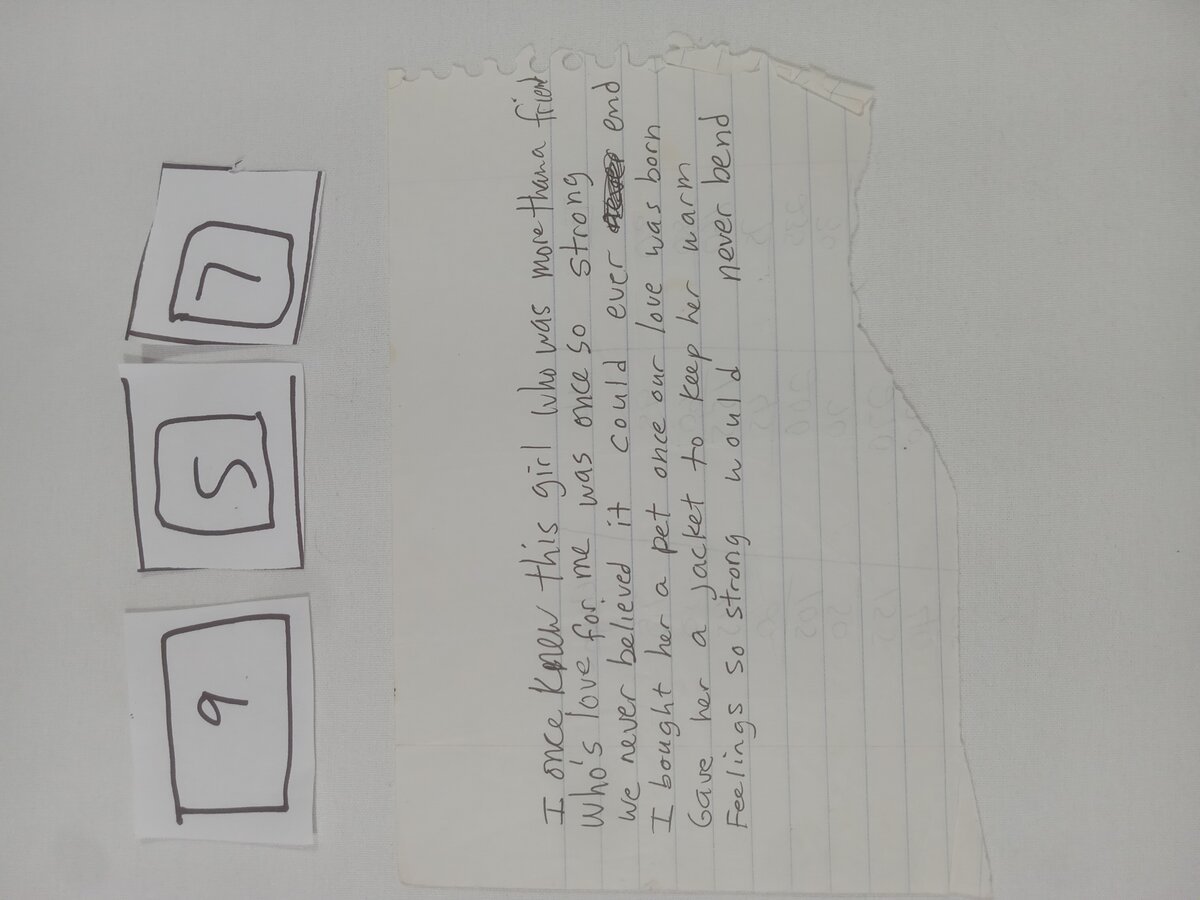 9 5 7
I once knew this girl who was more than a friend
Who's love for me was once so strong
we never believed it could ever end
I bought her a pet once our love was born
Gave her a jacket to keep her warm
Feelings so strong would never bend